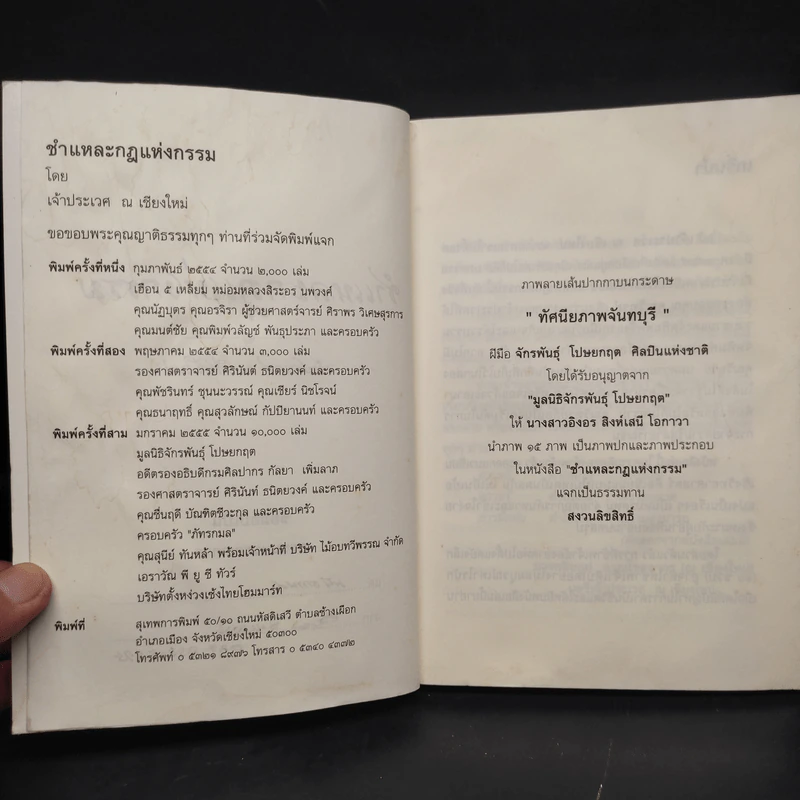 ชำแหละกฎแห่งกรรม
โดย
เจ้าประเวศ ณ เชียงใหม่
ขอขอบพระคุณญาติธรรมทุกๆ ท่านที่ร่วมจัดพิมพ์แจก
พิมพ์ครั้งที่หนึ่ง กุมภาพันธ์ ๒๕๕๔ จำนวน ๒,๐๐๐ เล่ม
เฮือน ๕ เหลี่ยม หม่อมหลวงสิระอร นพวงศ์
คุณนัฎบุตร คุณอรจิรา ผู้ช่วยศาสตร์จารย์ ศิราพร วิเศษสุรการ
คุณมนต์ชัย คุณพิมพ์วลัญช์ พันธุประภา และครอบครัว
พิมพ์ครั้งที่สอง พฤษภาคม ๒๕๕๔ จำนวน ๓,๐๐๐ เล่ม
รองศาสตราจารย์ ศิรินันต์ ธนิตยวงศ์ และครอบครัว
คุณพัชรินทร์ ชุนนะวรรณ์ คุณเชียร์ นิชโรจน์
คุณธนาฤทธิ์ คุณสุวลักษณ์ กัปปิยานนท์ และครอบครัว
พิมพ์ครั้งที่สาม มกราคม ๒๕๕๕ จำนวน ๑๐,๐๐๐ เล่ม
มูลนิธิจักรพันธุ์ โปษยกฤต
อดีตรองอธิบดีกรมศิลปากร กัลยา เพิ่มลาภ
รองศาสตราจารย์ ศิรินันท์ ธนิตยวงศ์ และครอบครัว
คุณชื่นฤดี บัณฑิตชีวะกุล และครอบครัว
ครอบครัว "ภัทรกมล"
คุณสุนีย์ ทันหล้า พร้อมเจ้าหน้าที่ บริษัท ไม้อบทวีพรรณ จำกัด
เอราวัณ พี ยู ซี ทัวร์
บริษัทตั้งหง่วงเซ้งไทยโฮมมาร์ท
พิมพ์ที่ สุเทพการพิมพ์ ๕๐/๑๐ ถนนหัสดิเสวี ตำบลช้างเผือก
อำเภอเมือง จังหวัดเชียงใหม่ ๕๐๓๐๐
โทรศัพท์ ๐ ๕๓๒๑ ๘๙๗๖ โทรสาร ๐ ๕๓๔๐ ๔๓๗๒
ภาพลายเส้นปากกาบนกระดาษ
" ทัศนียภาพจันทบุรี "
ฝีมือ จักรพันธุ์ โปษยกฤต ศิลปินแห่งชาติ
โดยได้รับอนุญาตจาก
"มูลนิธิจักรพันธุ์ โปษยกฤต"
ให้ นางสาวอิงอร สิงห์เสนี โอกาวา
นำภาพ ๑๕ ภาพ เป็นภาพปกและภาพประกอบ
ในหนังสือ "ชำแหละกฎแห่งกรรม"
แจกเป็นธรรมทาน
สงวนลิขสิทธิ์